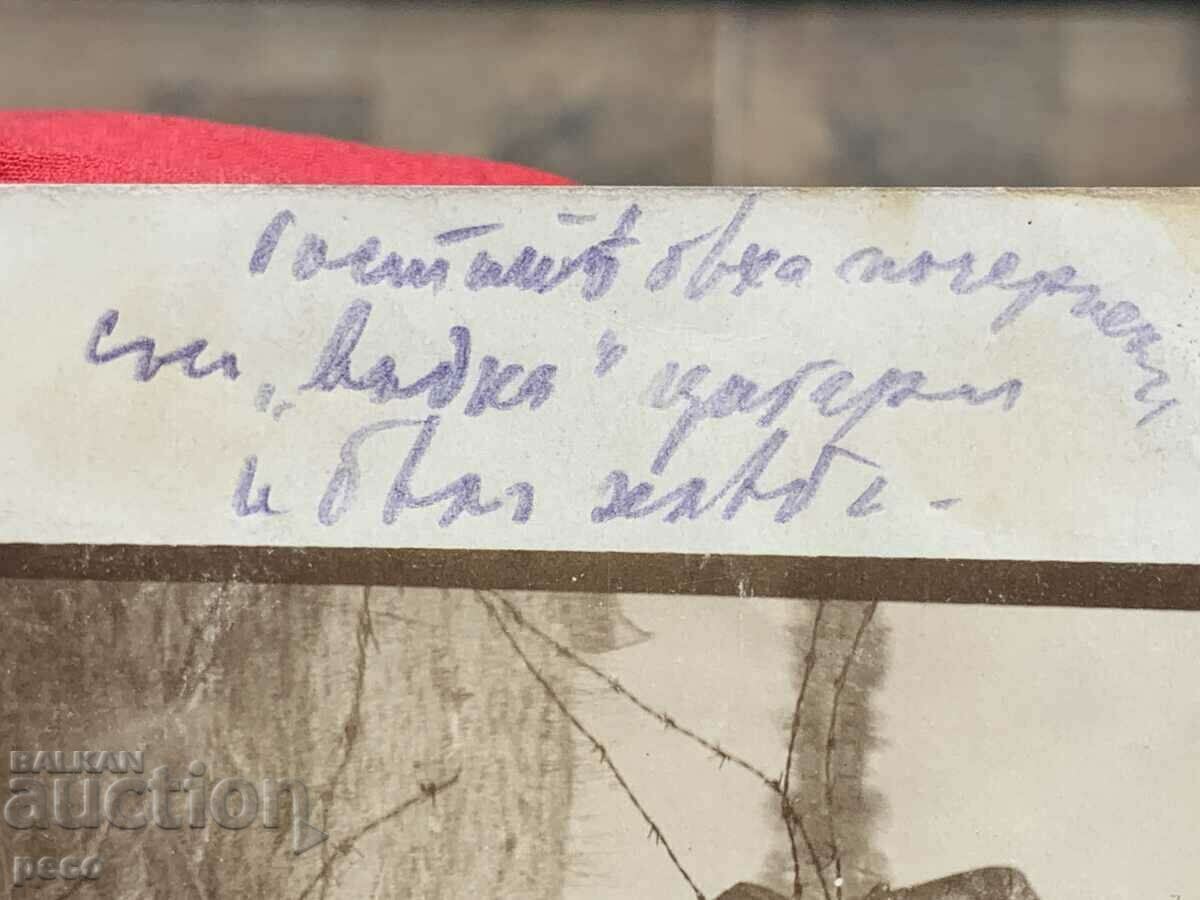 Гоститѣ бѣха почерпени
съ „вадка“ цигари
и бѣлъ хлѣбъ -
BALKAN
auction
peco